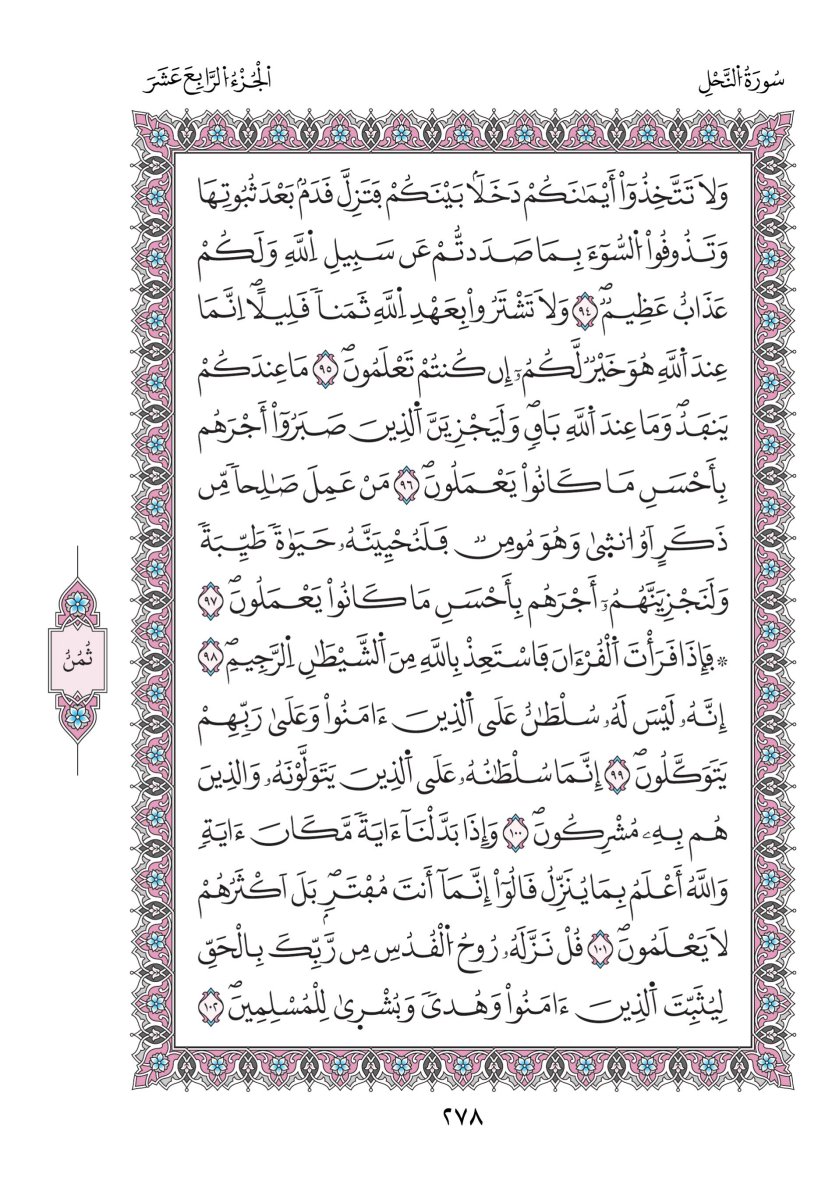 سُورَةُ اُ۬لنَّحْلِ
اَ۬لْجُزْءُ اُ۬لرَّابِعَ عَشَرَ
وَلَا تَتَّخِذُوٓاْ أَيْمَٰنَكُمْ دَخَلاَۢ بَيْنَكُمْ فَتَزِلَّ قَدَمُۢ بَعْدَ ثُبُوتِهَا
وَتَذُوقُواْ اُ۬لسُّوٓءَ بِمَا صَدَدتُّمْ عَن سَبِيلِ اِ۬للَّهِ وَلَكُمْ
عَذَابٌ عَظِيمٞۖ ٩٤ وَلَا تَشْتَرُواْ بِعَهْدِ اِ۬للَّهِ ثَمَناٗ قَلِيلاًۖ اِنَّمَا
عِندَ اَ۬للَّهِ هُوَ خَيْرٞ لَّكُمُۥٓ إِن كُنتُمْ تَعْلَمُونَۖ ٩٥ مَا عِندَكُمْ
يَنفَدُۖ وَمَا عِندَ اَ۬للَّهِ بَاقٖۖ وَلَيَجْزِيَنَّ اَ۬لذِينَ صَبَرُوٓاْ أَجْرَهُم
بِأَحْسَنِ مَا كَانُواْ يَعْمَلُونَۖ ٩٦ مَنْ عَمِلَ صَٰلِحاٗ مِّن
ذَكَرٍ اَوُ ا۟نث۪ىٰ وَهُوَ مُومِنٞ فَلَنُحْيِيَنَّهُۥ حَيَوٰةٗ طَيِّبَةٗ
وَلَنَجْزِيَنَّهُمُۥٓ أَجْرَهُم بِأَحْسَنِ مَا كَانُواْ يَعْمَلُونَۖ ٩٧
۞ فَإِذَا قَرَأْتَ اَ۬لْقُرْءَانَ فَاسْتَعِذْ بِاللَّهِ مِنَ اَ۬لشَّيْطَٰنِ اِ۬لرَّجِيمِۖ ٩٨
إِنَّهُۥ لَيْسَ لَهُۥ سُلْطَٰنٌ عَلَى اَ۬لذِينَ ءَامَنُواْ وَعَلَىٰ رَبِّهِمْ
يَتَوَكَّلُونَۖ ٩٩ إِنَّمَا سُلْطَٰنُهُۥ عَلَى اَ۬لذِينَ يَتَوَلَّوْنَهُۥ وَالذِينَ
هُم بِهِۦ مُشْرِكُونَۖ ١٠٠ وَإِذَا بَدَّلْنَآ ءَايَةٗ مَّكَانَ ءَايَةٖ
وَاللَّهُ أَعْلَمُ بِمَا يُنَزِّلُ قَالُوٓاْ إِنَّمَآ أَنتَ مُفْتَرِۢۖ بَلَ اَكْثَرُهُمْ
لَا يَعْلَمُونَۖ ١٠١ قُلْ نَزَّلَهُۥ رُوحُ اُ۬لْقُدُسِ مِن رَّبِّكَ بِالْحَقِّ
لِيُثَبِّتَ اَ۬لذِينَ ءَامَنُواْ وَهُدىٗ وَبُشْر۪ىٰ لِلْمُسْلِمِينَۖ ١٠٢
ثُمُنٌ
٢٧٨